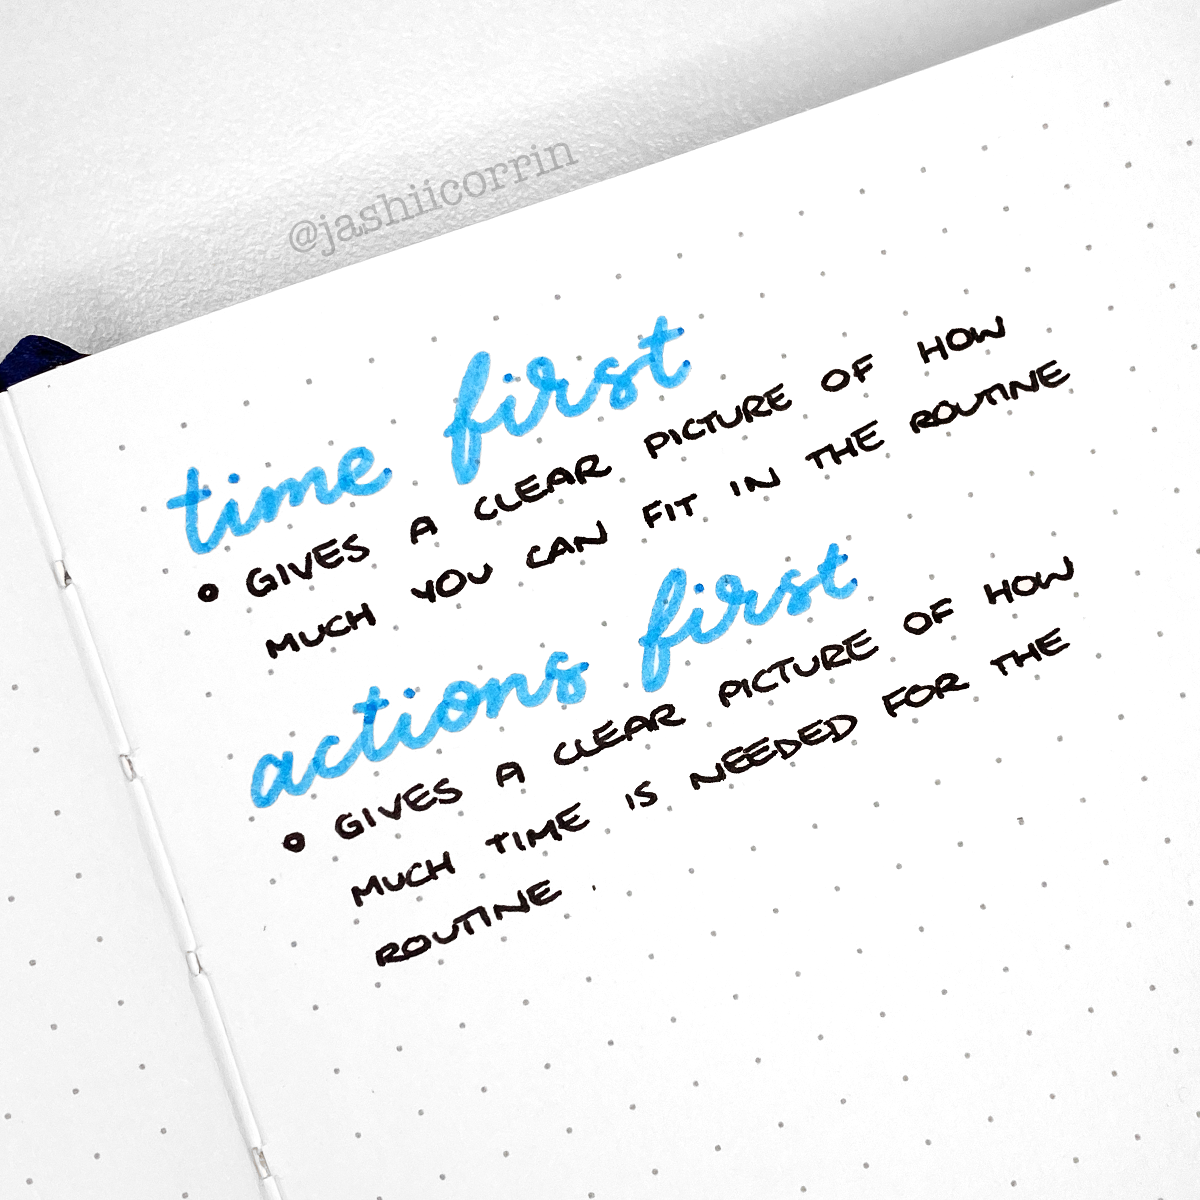 @jashiicorrin
time first
• GIVES A CLEAR PICTURE OF HOW
MUCH YOU CAN FIT IN THE ROUTINE
actions first
• GIVES A CLEAR PICTURE OF HOW
MUCH TIME IS NEEDED FOR THE
ROUTINE.